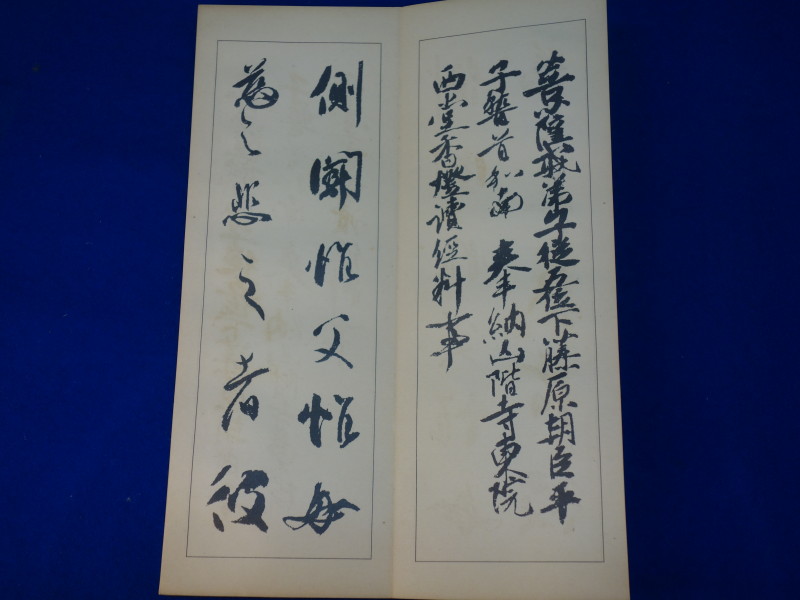 菩薩戒弟子従五位下藤原朝臣平
子稽首和南　奉納山階寺東院
西堂香燈讀經料事
側聞惟父惟母
慈之悲之者彼